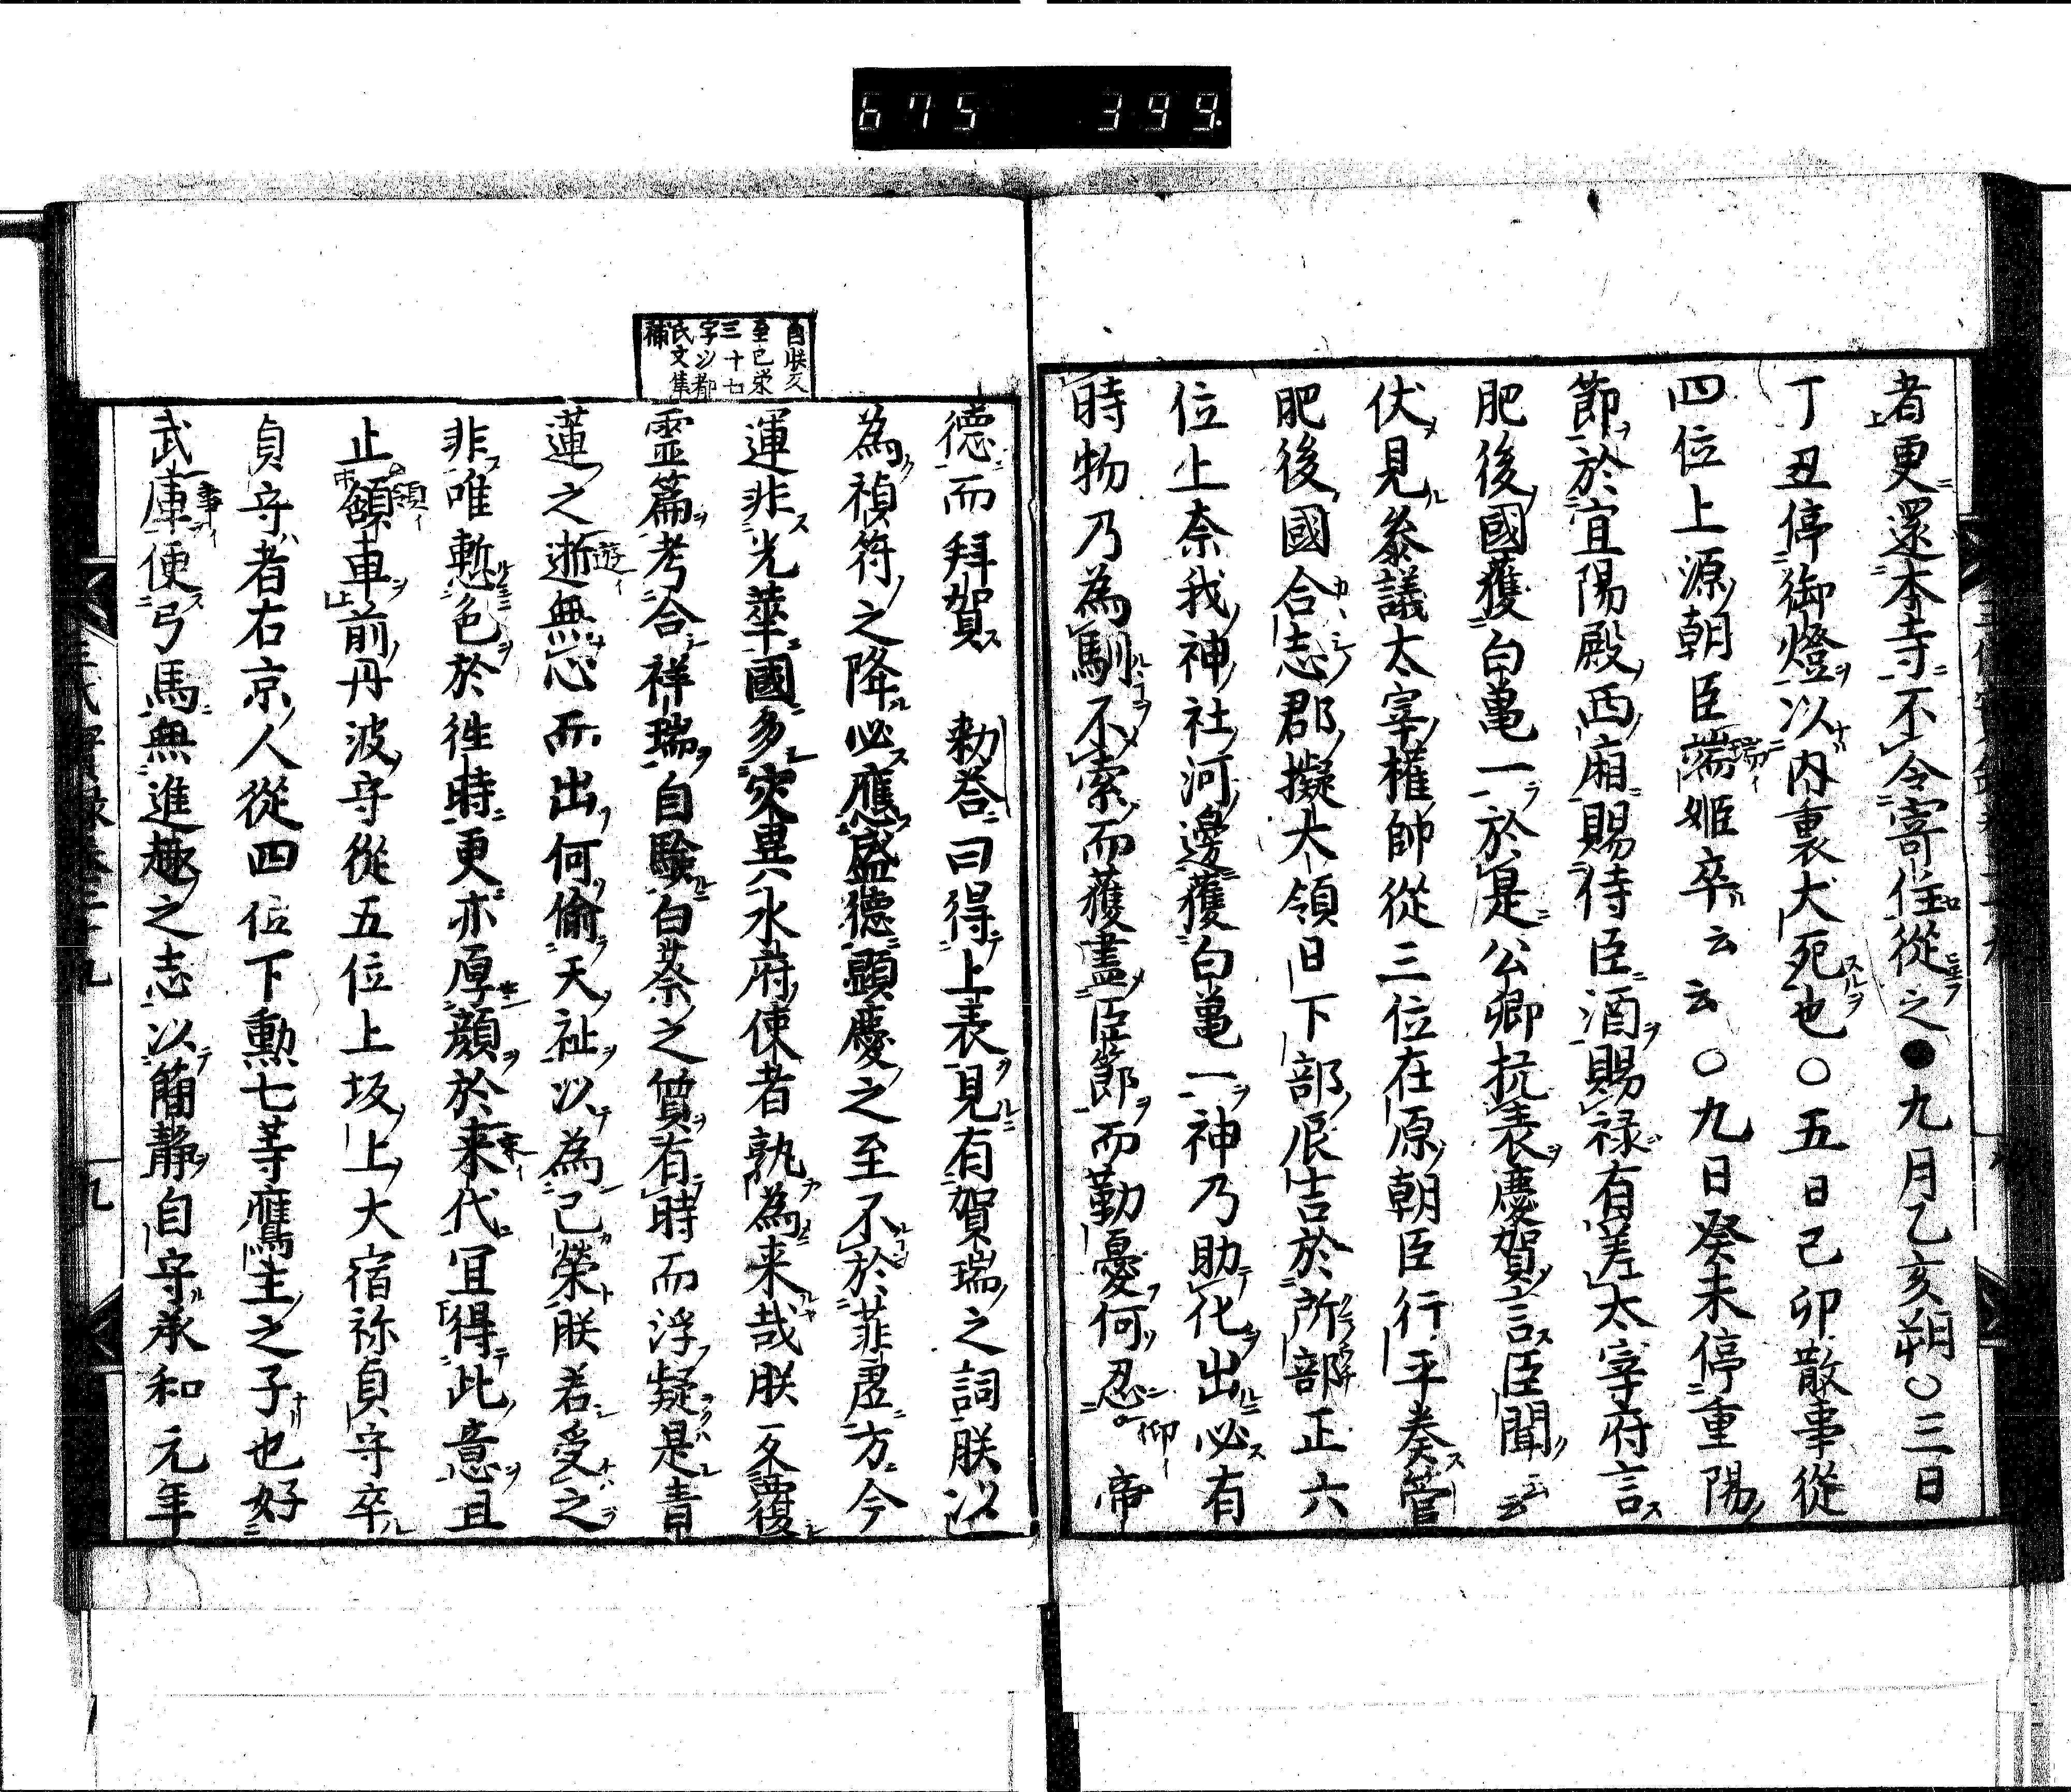 675 399.
者更還本寺不令寄住從之●九月乙亥朔○三日
丁丑停御燈以内裏犬死也○五日己卯散事從
四位上源朝臣端姬卒云云○九日癸未停重陽
節於宜陽殿西廂賜侍臣酒賜祿有差太宰府言
肥後國獲白亀一於是公卿抗表慶賀言臣聞云云
伏見叅議太宰權帥從三位在原朝臣行平奏管
肥後國合志郡擬大領日下部辰吉於所部正六
位上奈我神社河邊獲白亀一神乃助化出必有
時物乃為馴不索而獲盡臣節而勤憂何忍 帝
德而拜賀 勅荅曰得上表見有賀瑞之詞朕以
為禎符之降必應盛德顯慶之至不於菲虗方今
運非光華國多灾異水府使者孰為来哉朕一夂覆
靈篇考合祥瑞自驗白蔡之質有時而浮凝是青
蓮之逝無心而出何偷天祉以為己榮朕若受之
非唯慙色於徃時更亦厚顔於来代冝得此意且
止頷車前丹波守從五位上坂上大宿祢貞守卒
貞守者右京人從四位下勳七等鷹主之子也好
武庫便弓馬無進趣之志以簡静自守承和元年
自朕又
至已栄
三十七
字以都
氏文集
補